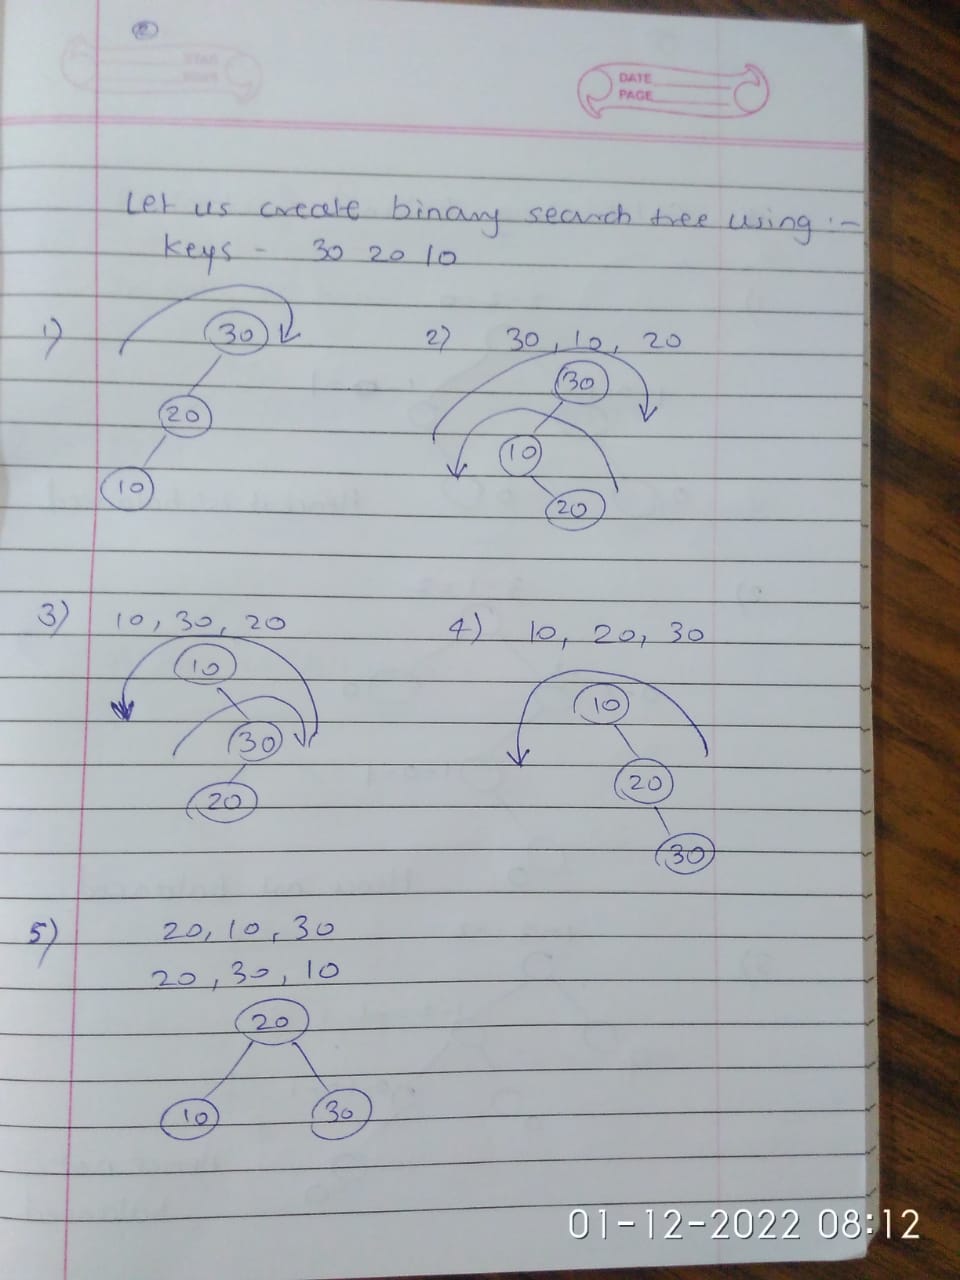 DATE
PAGE
Let us create binary search tree using :-
Keys - 30 20 10
1)
30
20
10
2) 30, 10, 20
30
10
20
3) 10, 30, 20
10
30
20
4) 10, 20, 30
10
20
30
5) 20, 10, 30
20, 30, 10
20
10 30
01-12-2022 08:12